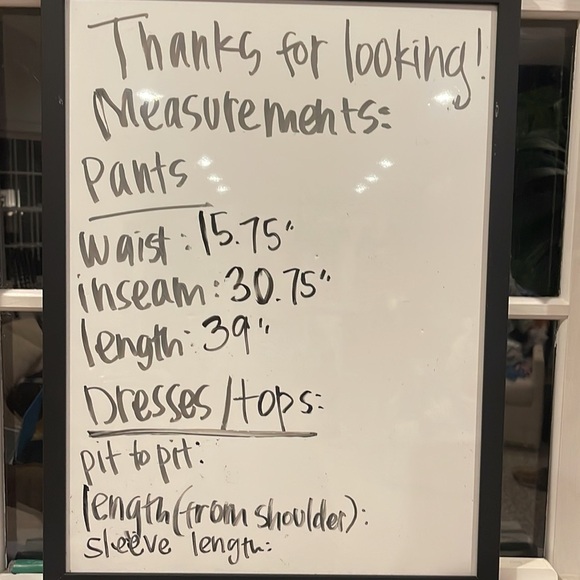 Thanks for looking!
Measurements:
Pants
waist: 15.75"
inseam: 30.75"
length: 39"
Dresses/tops:
pit to pit:
length (from shoulder):
sleeve length: